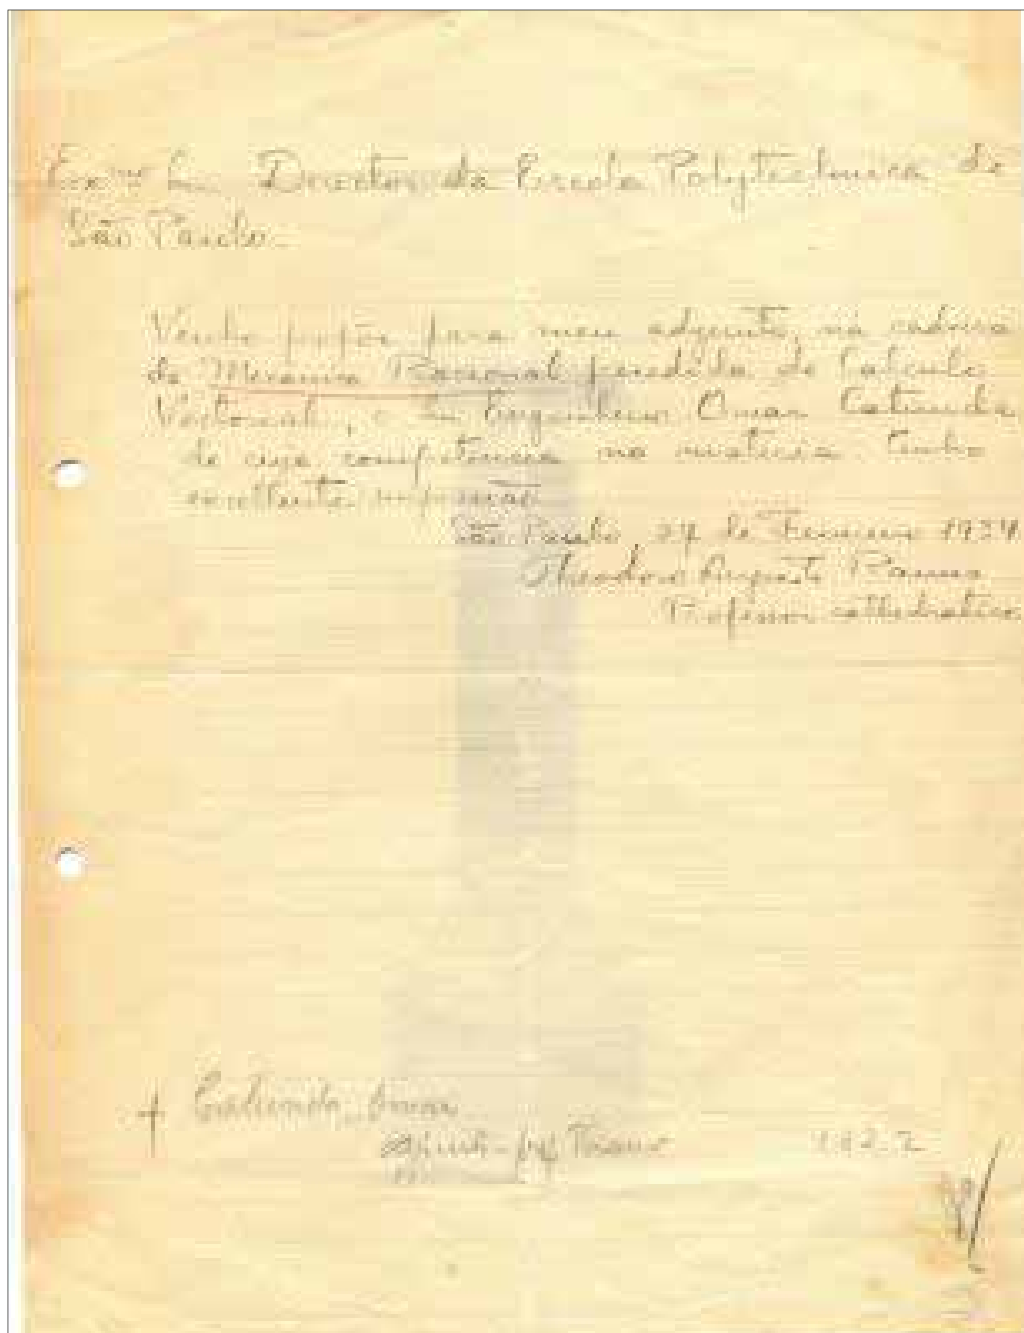 Exmo Snr Director da Escola Polytechnica de
São Paulo.
Venho propôr para meu adjuncto, na cadeira
de Mecanica Racional precedida de Calculo
Vectorial, o Snr Engenheiro Omar Catunda
de cuja competencia na materia tenho
excellente impressão
São Paulo, 27 de Fevereiro 1934
Theodoro Augusto Ramos
Professor cathedratico
Catunda, Omar
prof Ramos